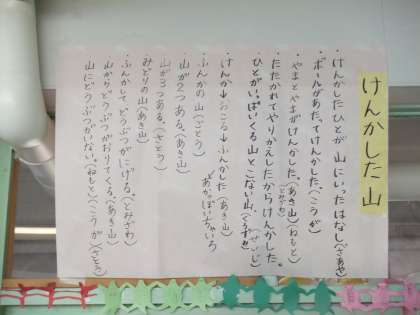 けんかした山
・けんかしたひとが山にいったはなし(さあや)
・ボールがあたってけんかした。(こうが)
・やまとやまがけんかした。(あき山)(ねもと)
・たたかれてやりかえしたからけんかした。
・ひとがいっぱいくる山とこない山。
・けんか→おこる→ふんかした(あき山)
・ふんかの山(さとう)
あかっぽいちゃいろ
・山が2つある。(あき山)
・山が3つある。(さとう)
・みどりの山(あき山)
・ふんかして、どうぶつがにげる。(とみざわ)
・山からどうぶつがおりてくる(あき山)
・山にどうぶつがいない。(ねもと)(こうが)(さとう)